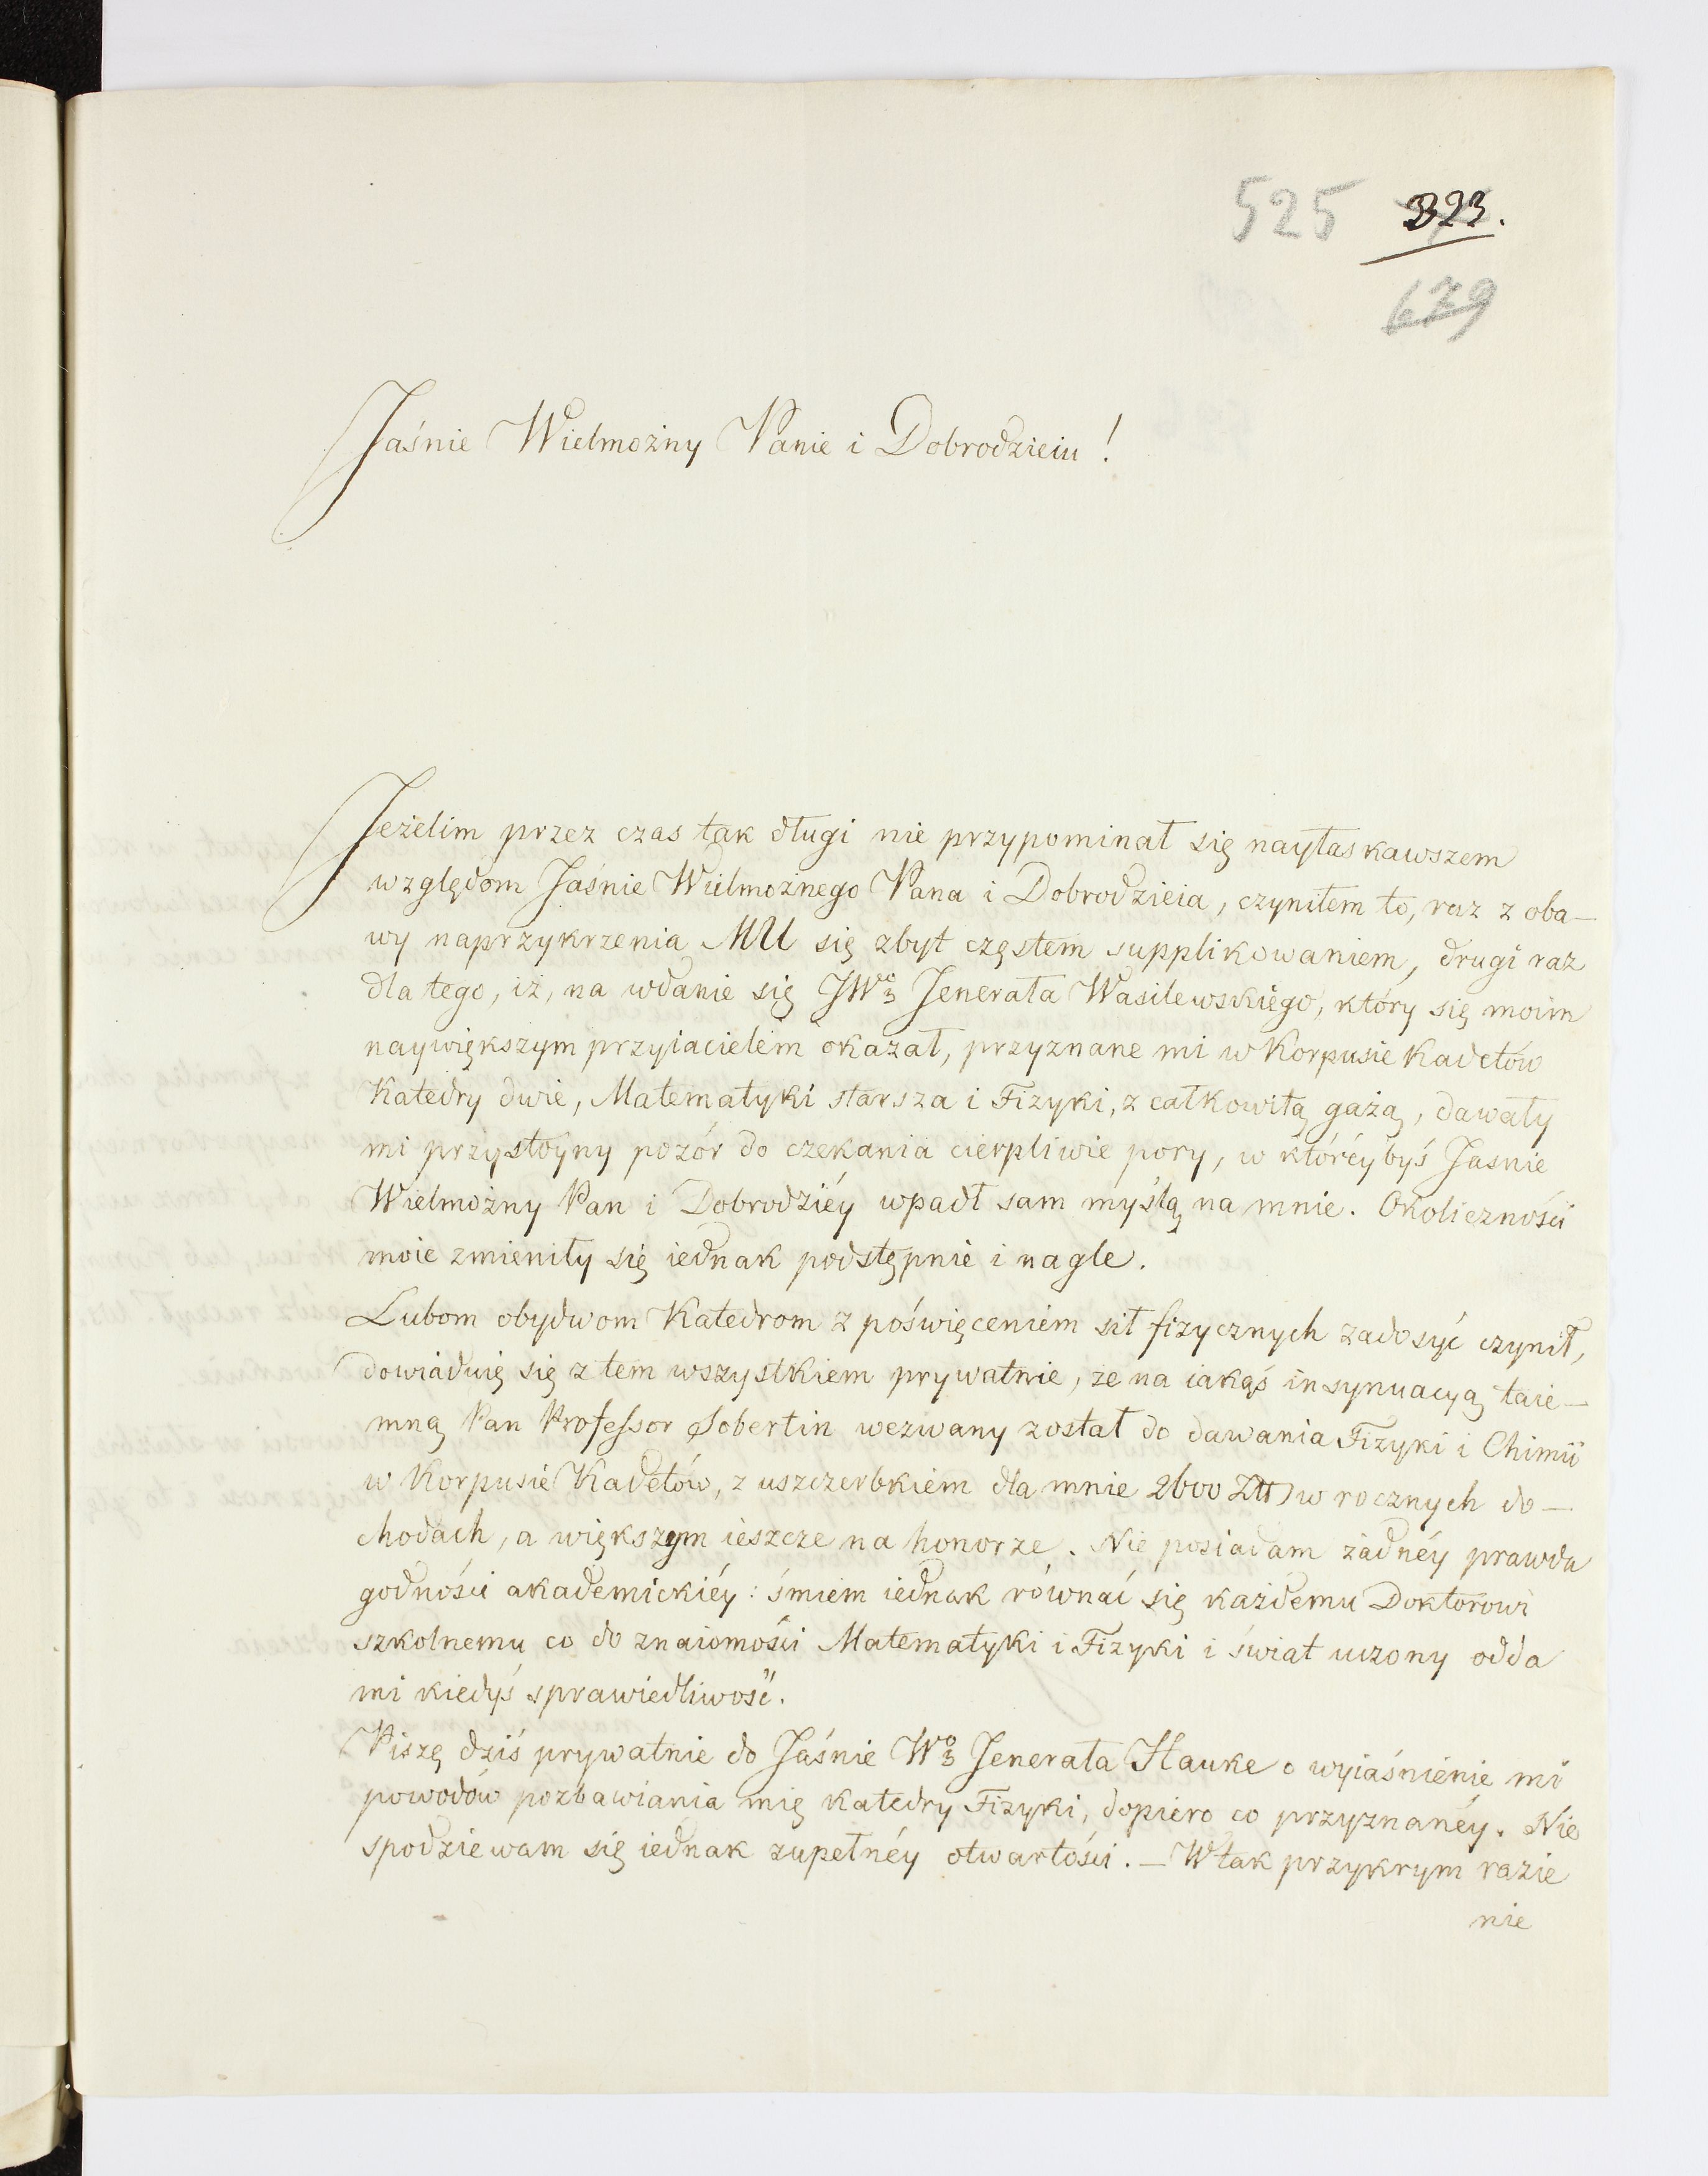 525 323.
679
Jaśnie Wielmożny Panie i Dobrodzieiu!
Jeżelim przez czas tak długi nie przypominał się nayłaskawszem
względom Jaśnie Wielmożnego Pana i Dobrodzieia, czyniłem to, raz z oba-
wy naprzykrzenia MU się zbyt częstem supplikowaniem, drugi raz
dla tego, iż, na wdanie się JWo Jenerała Wasilewskiego, który się moim
naywiększym przyiacielem okazał, przyznane mi w Korpusie Kadetów
Katedry dwie, Matematyki starsza i Fizyki, z całkowitą gażą, dawały
mi przystoyny pozór do czekania cierpliwie pory, w któréybyś Jasnie
Wielmożny Pan i Dobrodziéy wpadł sam myślą na mnie. Okoliczności
moie zmieniły się iednak podstępnie i nagle.
Lubom obydwom Katedrom z poświęceniem sił fizycznych zadosyć czynił,
dowiaduię się z tem wszystkiem prywatnie, że na iakąś insynuacyą taie-
mną Pan Professor Sobertin wezwany został do dawania Fizyki i Chimii
w Korpusie Kadetów, z uszczerbkiem dla mnie 2600 Złł w rocznych do-
chodach, a większym ieszcze na honorze. Nie posiadam żadnéy prawda
godności akademickiéy: śmiem iednak równać się każdemu Doktorowi
szkolnemu co do znaiomości Matematyki i Fizyki i świat uczony odda
mi kiedyś sprawiedliwość.
Piszę dziś prywatnie do Jaśnie Wo Jenerała Hauke o wyiaśnienie mi
powodów pozbawiania mię katedry Fizyki, dopiero co przyznanéy. Nie
spodziewam się iednak zupełnéy otwartości. - W tak przykrym razie
nie